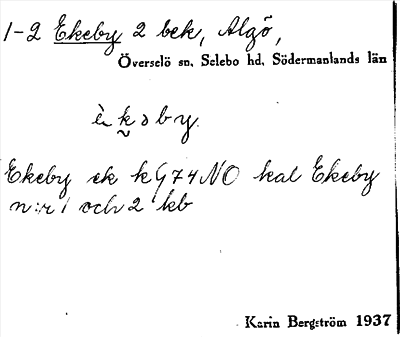 1-2 Ekeby 2 bek, Algö,
Överselö sn, Selebo hd, Södermanlands län
èkəby.
Ekeby ek kG74NO kal Ekeby
n:r 1 och 2 kb
Karin Bergström 1937